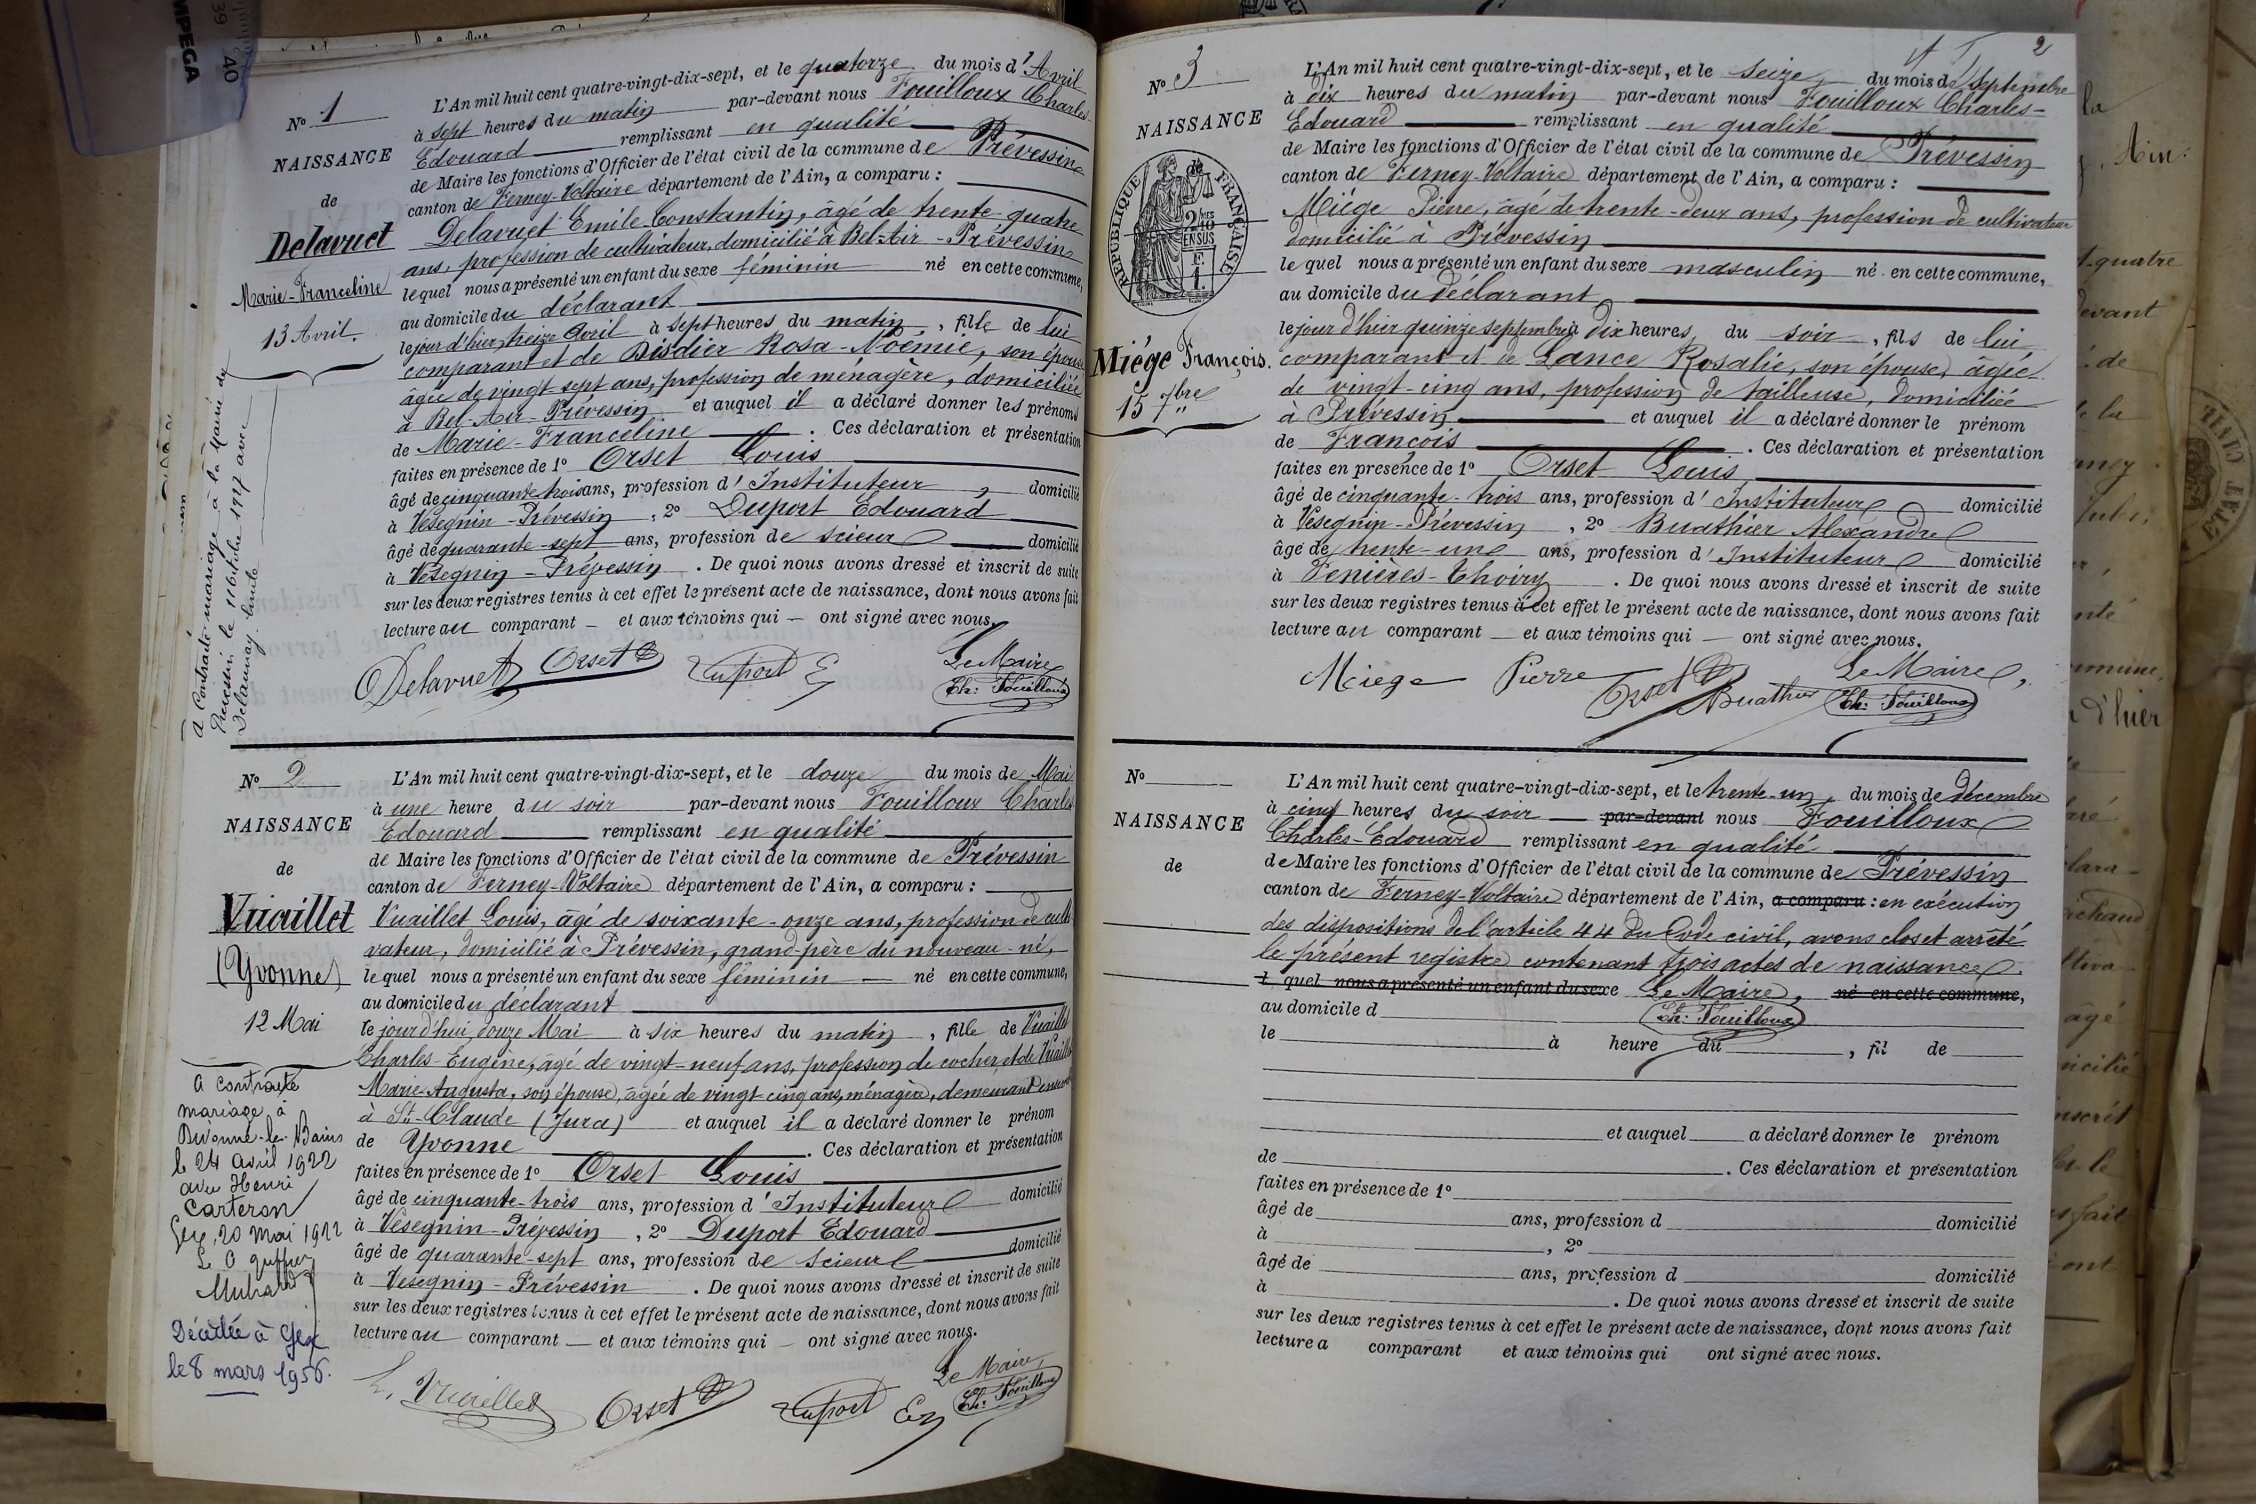 No 1
NAISSANCE
de
Delavuet
Marie-Franceline
13 Avril.
A Contracté mariage à la Mairie de
Prévessin le 11 8bre 1917 avec
Delaunay
L'An mil huit cent quatre-vingt-dix-sept, et le quatorze du mois d'Avril
à sept heures du matin par-devant nous Fouilloux Charles-
Edouard remplissant en qualité
de Maire les fonctions d'Officier de l'état civil de la commune de Prévessin
canton de Ferney-Voltaire département de l'Ain, a comparu :
Delavuet Emile Constantin, âgé de trente-quatre
ans, profession de cultivateur, domicilié à Bel-Air - Prévessin
lequel nous a présenté un enfant du sexe féminin né en cette commune,
au domicile du déclarant
le jour d'hier, treize Avril à sept heures du matin, fille de lui
comparant et de Disdier Rosa-Noémie, son épouse
âgée de vingt-sept ans, profession de ménagère, domiciliée
à Bel-Air-Prévessin et auquel il a déclaré donner les prénoms
de Marie-Franceline. Ces déclaration et présentation
faites en présence de 1º Orset Louis
âgé de cinquante trois ans, profession d'Instituteur, domicilié
à Vésegnin-Prévessin, 2º Duport Edouard
âgé de quarante-sept ans, profession de scieur domicilié
à Vésegnin-Prévessin. De quoi nous avons dressé et inscrit de suite
sur les deux registres tenus à cet effet le présent acte de naissance, dont nous avons fait
lecture au comparant — et aux témoins qui — ont signé avec nous.
Delavuet Orset Duport E Le Maire
Ch: Fouilloux
No 2
NAISSANCE
de
Vuaillet
(Yvonne)
12 Mai
a contracté
mariage à
Divonne-les-Bains
le 24 avril 1922
avec Henri
Carteron
Gex, 20 mai 1922
Décédée à Gex
le 8 mars 1956.
L'An mil huit cent quatre-vingt-dix-sept, et le douze du mois de Mai
à une heure du soir par-devant nous Fouilloux Charles
Edouard remplissant en qualité
de Maire les fonctions d'Officier de l'état civil de la commune de Prévessin
canton de Ferney-Voltaire département de l'Ain, a comparu :
Vuaillet Louis, âgé de soixante-onze ans, profession de culti
vateur, domicilié à Prévessin, grand-père du nouveau-né,
lequel nous a présenté un enfant du sexe féminin — né en cette commune,
au domicile du déclarant
le jour d'hui douze Mai à six heures du matin, fille de Vuaillet
Charles-Eugène, âgé de vingt-neuf ans, profession de cocher, et de Vuaillet
Marie-Augusta, son épouse, âgée de vingt-cinq ans, ménagère, demeurant ensemble
à St-Claude (Jura) et auquel il a déclaré donner le prénom
de Yvonne. Ces déclaration et présentation
faites en présence de 1º Orset Louis
âgé de cinquante-trois ans, profession d'Instituteur domicilié
à Vésegnin-Prévessin, 2º Duport Edouard
âgé de quarante-sept ans, profession de scieur domicilié
à Vésegnin-Prévessin. De quoi nous avons dressé et inscrit de suite
sur les deux registres tenus à cet effet le présent acte de naissance, dont nous avons fait
lecture au comparant — et aux témoins qui — ont signé avec nous.
L. Vuaillet Orset Duport E Le Maire
Ch: Fouilloux
2
No 3
NAISSANCE
de
RÉPUBLIQUE FRANÇAISE
2/10 EN SUS
Miége François.
15 7bre
L'An mil huit cent quatre-vingt-dix-sept, et le seize du mois de Septembre
à dix heures du matin par-devant nous Fouilloux Charles-
Edouard remplissant en qualité
de Maire les fonctions d'Officier de l'état civil de la commune de Prévessin
canton de Ferney-Voltaire département de l'Ain, a comparu :
Miége Pierre, âgé de trente-deux ans, profession de cultivateur
domicilié à Prévessin
lequel nous a présenté un enfant du sexe masculin né en cette commune,
au domicile du déclarant
le jour d'hier quinze septembre à dix heures du soir, fils de lui
comparant et de Lance Rosalie, son épouse, âgée
de vingt-cinq ans, profession de tailleuse, domiciliée
à Prévessin et auquel il a déclaré donner le prénom
de François. Ces déclaration et présentation
faites en présence de 1º Orset Louis
âgé de cinquante-trois ans, profession d'Instituteur domicilié
à Vésegnin-Prévessin, 2º Buathier Alexandre
âgé de trente-un ans, profession d'Instituteur domicilié
à Fenières-Thoiry. De quoi nous avons dressé et inscrit de suite
sur les deux registres tenus à cet effet le présent acte de naissance, dont nous avons fait
lecture au comparant — et aux témoins qui — ont signé avec nous.
Miége Pierre Orset Buathier Le Maire,
Ch: Fouilloux
No
NAISSANCE
de
L'An mil huit cent quatre-vingt-dix-sept, et le trente-un du mois de décembre
à cinq heures du soir — par-devant nous Fouilloux
Charles-Edouard remplissant en qualité
de Maire les fonctions d'Officier de l'état civil de la commune de Prévessin
canton de Ferney-Voltaire département de l'Ain, a comparu : en exécution
des dispositions de l'article 44 du Code civil, avons clos et arrêté
le présent registre contenant trois actes de naissance.
l quel nous a présenté un enfant du sexe Le Maire, né en cette commune,
au domicile d Ch: Fouilloux
le à heure du , fil de
et auquel a déclaré donner le prénom
de . Ces déclaration et présentation
faites en présence de 1º
âgé de ans, profession d domicilié
à , 2º
âgé de ans, profession d domicilié
à . De quoi nous avons dressé et inscrit de suite
sur les deux registres tenus à cet effet le présent acte de naissance, dont nous avons fait
lecture a comparant et aux témoins qui ont signé avec nous.